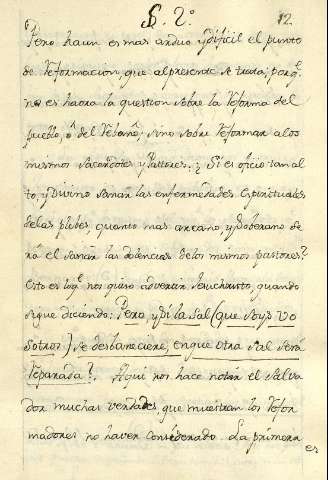 §. 2.º
12.
Pero haun es mas arduo y dificil el punto
de Reformacion, que alpresente se trata; porq.e
no es haora la question sobre la Reforma del
Pueblo, ô del Rebaño, sino sobre reformar alos
mismos Sacerdotes y Pastores. ¿ Si es oficio tan al
to, y Divino sanar las enfermedades Espirituales
delas plebes, quanto mas arcano, y Soberano se
rá el sanar las dolencias delos mismos pastores?
Esto es lo q.e nos quiso adverar Jesuchristo, quando
sigue diciendo: Pero y Si la Sal (que Soys vo
sotros) se desbaneciere, enque otra Sal Será
Reparada? Aqui nos hace notar el Salva
dor muchas verdades, que muestran los Refor
madores no haver considerado. La primera
es